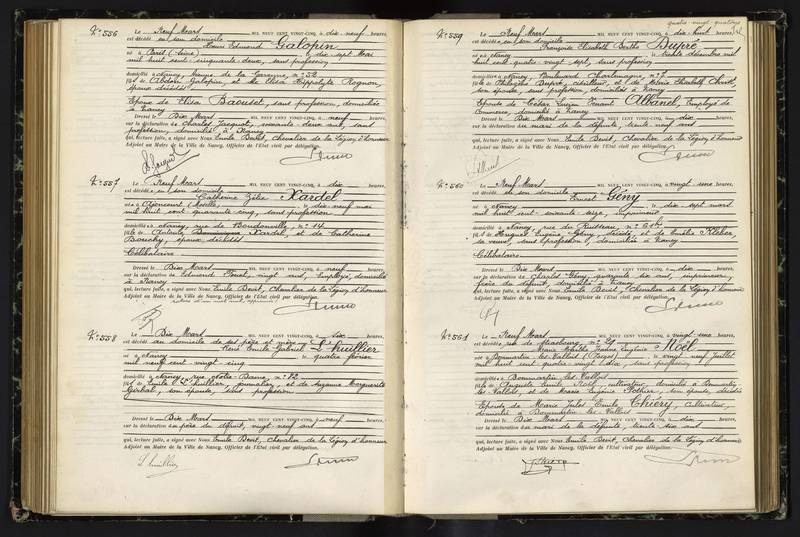 N° 556 Le Neuf Mars MIL NEUF CENT VINGT-CINQ, à dix-neuf heures,
est décédé en son domicile
Louis Edmond Galopin
né à Paris (Seine) le dix-sept Mai
mil huit cent cinquante-deux, sans profession
domicilié à Nancy, Avenue de la Garenne, n° 52
fils de Abdon Galopin, et de Hippolyte Rognon,
époux décédés
Epoux de Elisa Baouset, sans profession, domiciliée
à Nancy
Dressé le Dix Mars MIL NEUF CENT VINGT-CINQ, à neuf heures,
sur la déclaration de Charles Jacquot, soixante-deux ans, sans
profession, domicilié à Nancy
qui, lecture faite, a signé avec Nous Emile Benit, Chevalier de la Légion d'honneur
Adjoint au Maire de la Ville de Nancy, Officier de l'Etat civil par délégation.
N° 557 Le Neuf Mars MIL NEUF CENT VINGT-CINQ, à dix heures,
est décédée en son domicile
Catherine Zélie Xardel
née à Ajoncourt (Moselle) le dix-neuf mai
mil huit cent quarante-cinq, sans profession
domiciliée à Nancy, rue de Boudonville, n° 14
fille de Xardel, et de Catherine
époux décédés
Célibataire
Dressé le Dix Mars MIL NEUF CENT VINGT-CINQ, à neuf heures,
sur la déclaration de Edmond vingt ans, Employé, domicilié
à Nancy
qui, lecture faite, a signé avec Nous Emile Benit, Chevalier de la Légion d'honneur
Adjoint au Maire de la Ville de Nancy, Officier de l'Etat civil par délégation.
N° 558 Le Dix Mars MIL NEUF CENT VINGT-CINQ, à six heures,
est décédé au domicile de ses père et mère
René Emile Gabriel L'huillier
né à Nancy le quatre février
mil neuf cent vingt-cinq
domicilié à Nancy, rue Notre-Dame, n° 82
fils de Emile L'huillier, journalier, et de Suzanne Marguerite
Gérbal, son épouse, sans profession
Dressé le Dix Mars MIL NEUF CENT VINGT-CINQ, à neuf heures,
sur la déclaration du père du défunt, vingt-neuf ans
qui, lecture faite, a signé avec Nous Emile Benit, Chevalier de la Légion d'honneur
Adjoint au Maire de la Ville de Nancy, Officier de l'Etat civil par délégation.
L'huillier
quatre-vingt-quatorze
N° 559 Le Neuf Mars MIL NEUF CENT VINGT-CINQ, à dix-huit heures,
est décédée en son domicile
Françoise Elisabeth Berthe Dupré
née à Nancy le trente décembre mil
huit cent quatre-vingt-sept, sans profession
domiciliée à Nancy, Boulevard Charlemagne n° 7
fille de Philogène Dupré, et de Marie Elisabeth
son épouse, sans profession, domiciliés à Nancy
Epouse de Albanel, Employé de
Commerce, domicilié à Nancy
Dressé le Dix Mars MIL NEUF CENT VINGT-CINQ, à dix heures,
sur la déclaration du mari de la défunte, trente-neuf ans
qui, lecture faite, a signé avec Nous Emile Benit, Chevalier de la Légion d'honneur
Adjoint au Maire de la Ville de Nancy, Officier de l'Etat civil par délégation.
N° 560 Le Neuf Mars MIL NEUF CENT VINGT-CINQ, à vingt-une heures,
est décédé en son domicile
Ernest Gény
né à Nancy le dix-sept mars
mil huit cent soixante-seize, imprimeur
domicilié à Nancy, rue du Ruisseau, n° 61
fils de Hugues Eugène Gény, décédé, et de Emilie Kleber
sa veuve, sans profession, domiciliée à Nancy
Célibataire
Dressé le Dix Mars MIL NEUF CENT VINGT-CINQ, à dix heures,
sur la déclaration de Charles Gény, quarante-six ans, imprimeur,
frère du défunt, domicilié à Nancy
qui, lecture faite, a signé avec Nous Emile Benit, Chevalier de la Légion d'honneur
Adjoint au Maire de la Ville de Nancy, Officier de l'Etat civil par délégation.
N° 561 Le Neuf Mars MIL NEUF CENT VINGT-CINQ, à vingt-une heures,
est décédée rue de Strasbourg, n° 29
Marie Eugénie Noël
née à Bonmartin-les-Vallois (Vosges) le vingt-neuf Juillet
mil huit cent quatre-vingt-dix, sans profession
domiciliée à Bonmartin-les-Vallois
fille de Auguste Emile Noël, cultivateur, domicilié à Bonmartin-
les-Vallois, et de Marie Eugénie Pothier, son épouse, décédée
Epouse de Marie Jules Emile Chiéry, Cultivateur,
domicilié à Bonmartin-les-Vallois
Dressé le Dix Mars MIL NEUF CENT VINGT-CINQ, à dix heures,
sur la déclaration du mari de la défunte, trente-six ans
qui, lecture faite, a signé avec Nous Emile Benit, Chevalier de la Légion d'honneur
Adjoint au Maire de la Ville de Nancy, Officier de l'Etat civil par délégation.